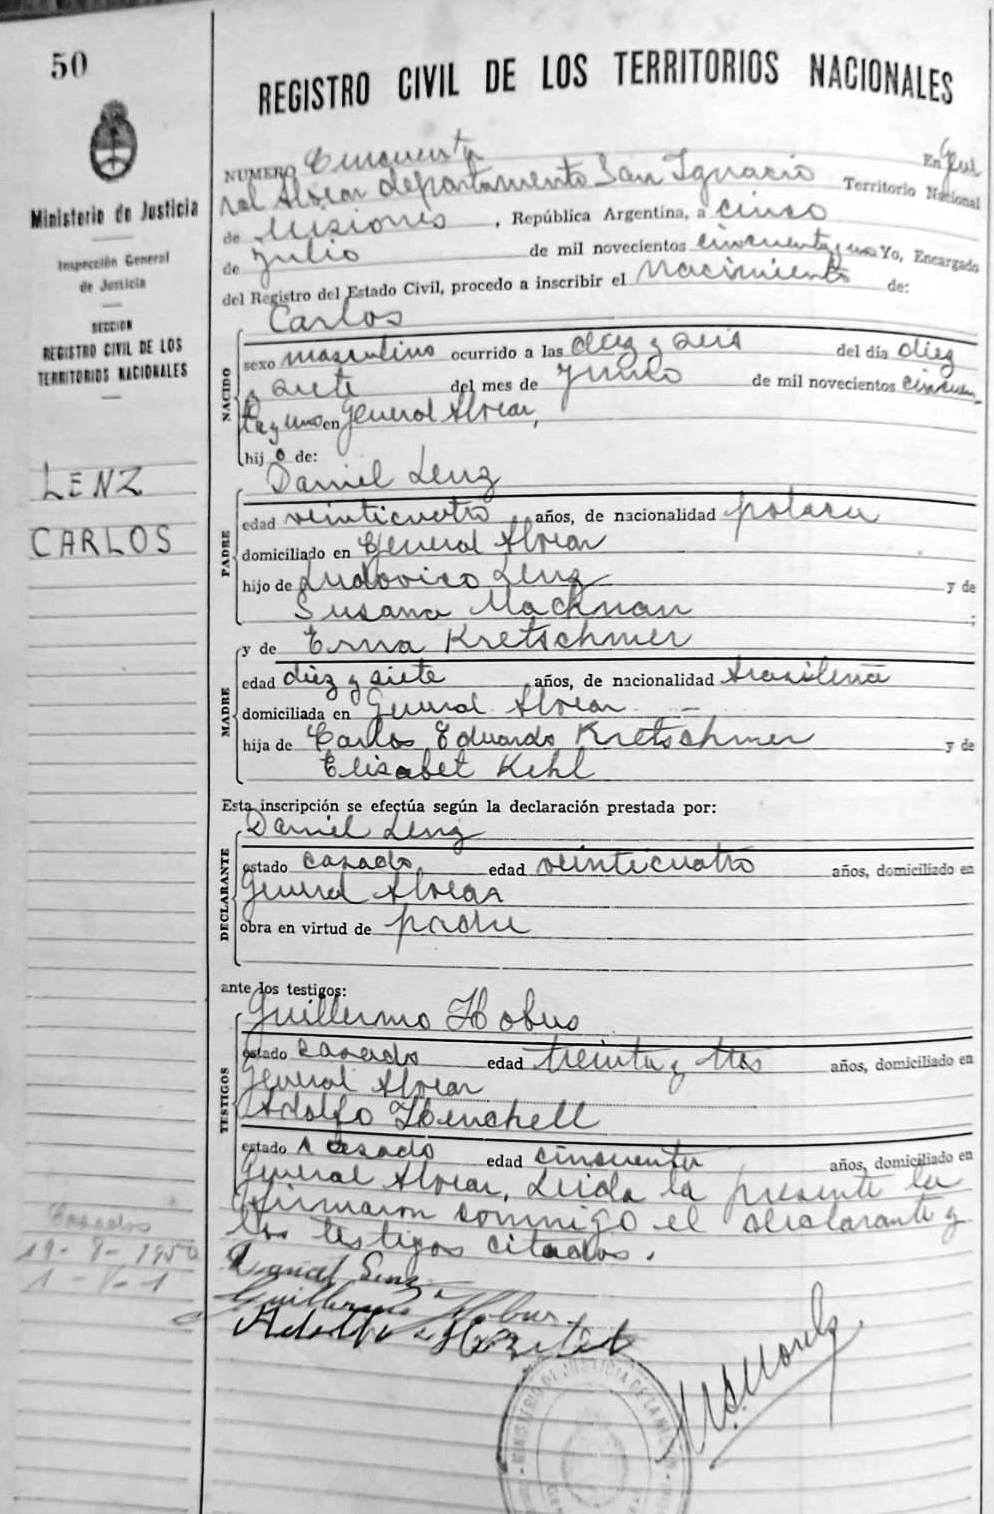 50
Ministerio de Justicia
Inspección General
de Justicia
SECCION
REGISTRO CIVIL DE LOS
TERRITORIOS NACIONALES
LENZ
CARLOS
Casados
19-9-1950
1-V-1
REGISTRO CIVIL DE LOS TERRITORIOS NACIONALES
NUMERO Cincuenta En Gene
ral Alvear departamento San Ignacio Territorio Nacional
de Misiones, República Argentina, a cinco
de Julio de mil novecientos cincuenta y uno Yo, Encargado
del Registro del Estado Civil, procedo a inscribir el Nacimiento de:
NACIDO
Carlos
sexo masculino ocurrido a las diez y seis del día diez
y siete del mes de Junio de mil novecientos cincuen-
ta y uno en General Alvear,
hijo de:
PADRE
Daniel Lenz
edad veinticuatro años, de nacionalidad polaca
domiciliado en General Alvear
hijo de Ludovico Lenz y de
Susana ;
MADRE
y de Erna Kretschmer
edad diez y siete años, de nacionalidad brasileña
domiciliada en General Alvear
hija de Carlos Eduardo Kretschmer y de
Elisabet Kehl
Esta inscripción se efectúa según la declaración prestada por:
DECLARANTE
Daniel Lenz
estado casado edad veinticuatro años, domiciliado en
General Alvear
obra en virtud de padre
ante los testigos:
TESTIGOS
Guillermo Hobus
estado casado edad treinta y tres años, domiciliado en
General Alvear
Adolfo Henchell
estado casado edad cincuenta años, domiciliado en
General Alvear, Leida la presente la
firmaron conmigo el declarante y
los testigos citados.
Daniel Lenz
Guillermo Hobus
Adolfo
MINISTERIO DE JUSTICIA DE LA NACION